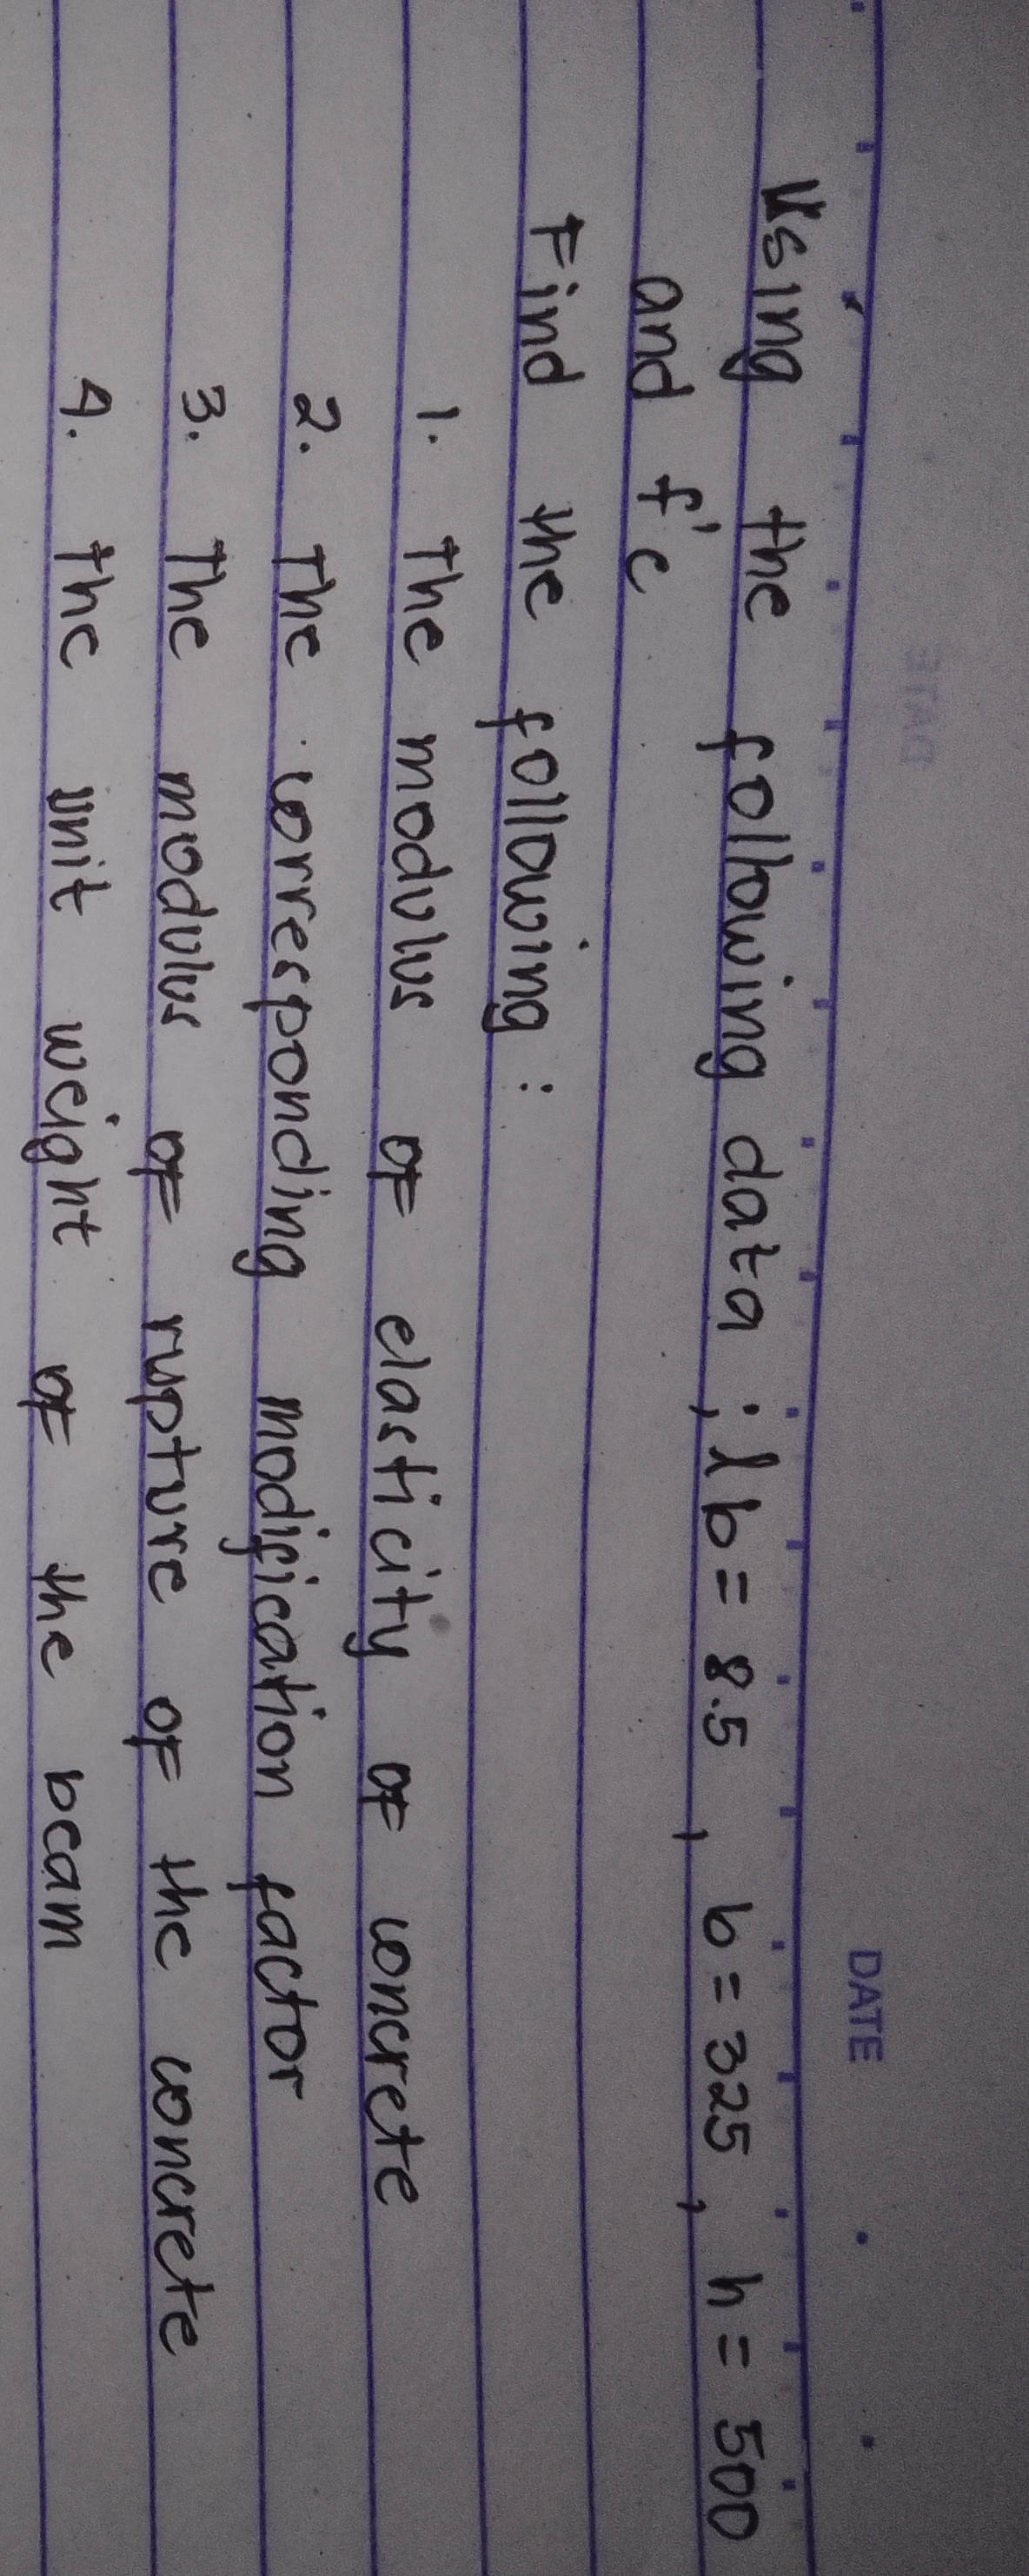 DATE
Using the following data ; lb = 8.5 , b = 325 , h = 500
and f'c
Find the following :
1. The modulus of elasticity of concrete
2. The corresponding modification factor
3. The modulus of rupture of the concrete
4. The unit weight of the beam